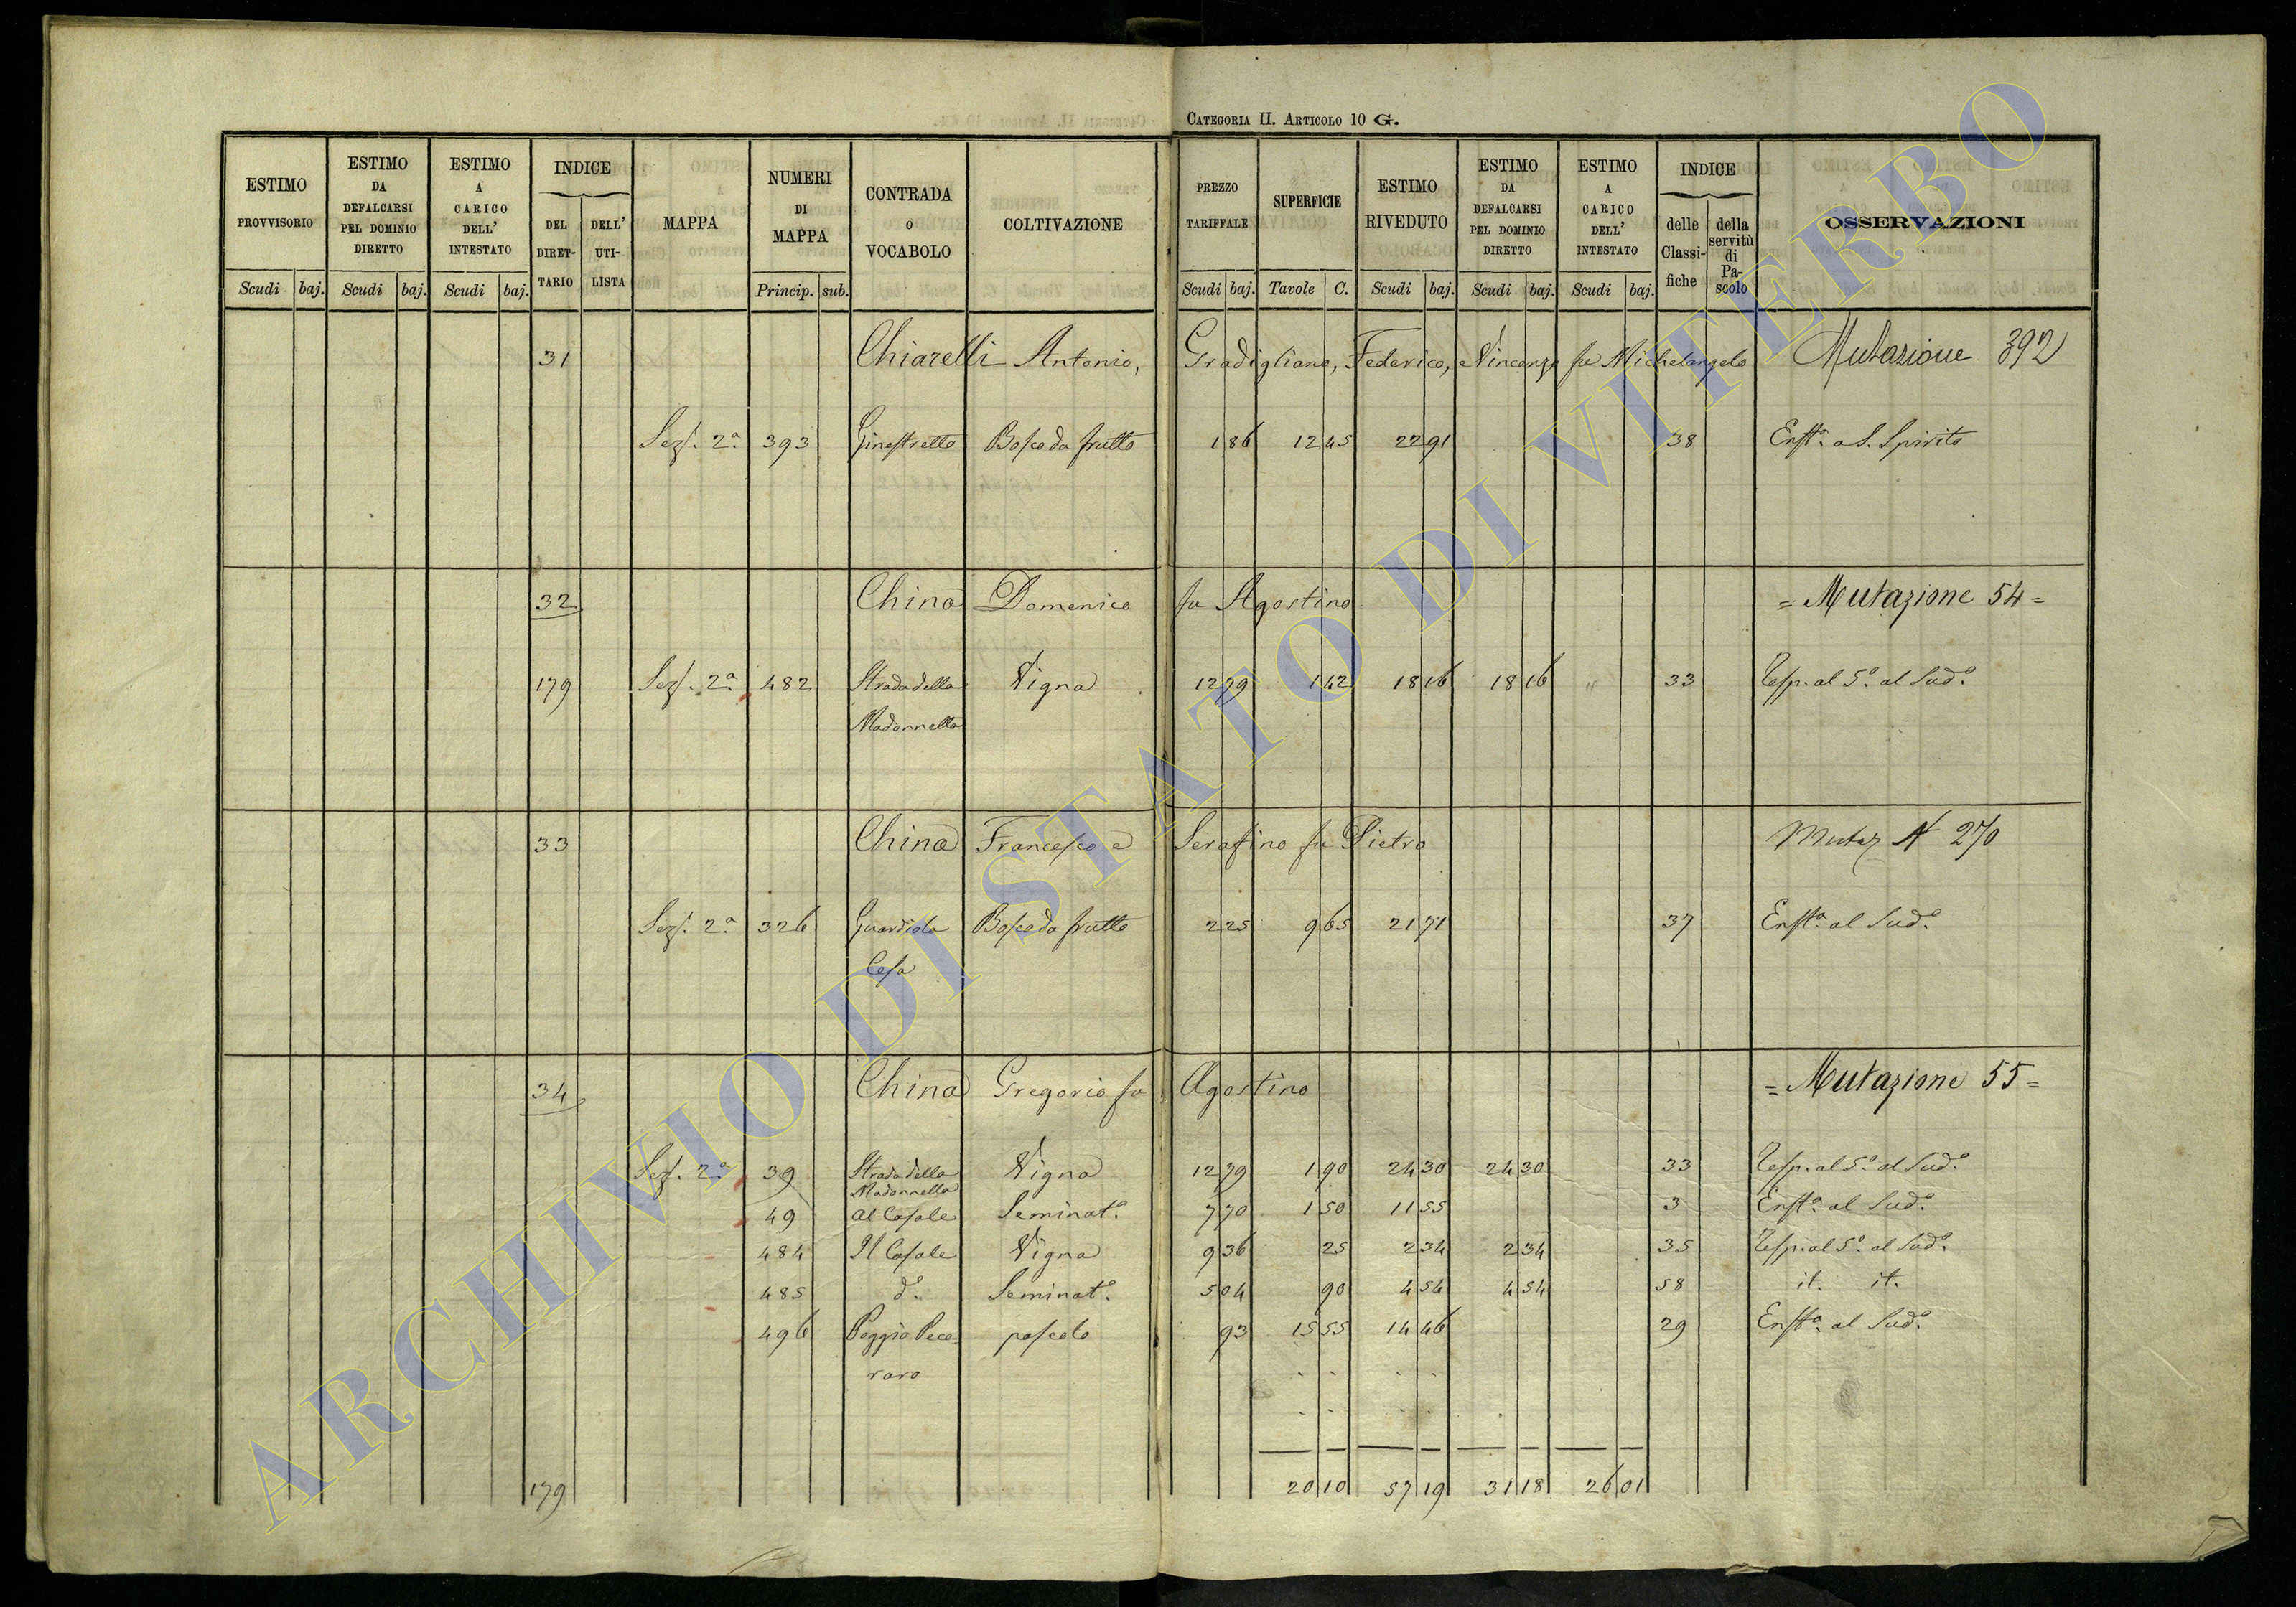 CATEGORIA II. ARTICOLO 10 G.
ESTIMO PROVVISORIO | ESTIMO DA DEFALCARSI PEL DOMINIO DIRETTO | ESTIMO A CARICO DELL' INTESTATO | INDICE DEL DIRETTARIO DELL' UTILISTA | MAPPA | NUMERI DI MAPPA | CONTRADA o VOCABOLO | COLTIVAZIONE | PREZZO TARIFFALE | SUPERFICIE | ESTIMO RIVEDUTO | ESTIMO DA DEFALCARSI PEL DOMINIO DIRETTO | ESTIMO A CARICO DELL' INTESTATO | INDICE delle Classifiche della servitù di Pascolo | OSSERVAZIONI
Scudi baj. Scudi baj. Scudi baj. Princip. sub. Scudi baj. Tavole C. Scudi baj. Scudi baj. Scudi baj.
31 Chiarelli Antonio, Gradigliano, Federico, Vincenzo fu Michelangelo Mutazione 392
Sez. 2.a 393 Ginestretto Bosco da frutto 1 86 12 45 22 91 38 Enft.a a S. Spirito
32 China Domenico fu Agostino = Mutazione 54 =
179 Sez. 2.a 482 Strada della Vigna 12 79 1 42 18 16 18 16 " 33 Resp. al 5.o al Sud.o
Madonnella
33 China Francesco e Serafino fu Pietro Mutaz N 270
Sez. 2.a 326 Guardiola Bosco da frutto 2 25 9 65 21 71 37 Enft.a al Sud.o
Cesa
34 China Gregorio fu Agostino = Mutazione 55 =
Sez. 2.a 39 Strada della Vigna 12 79 1 90 24 30 24 30 33 Resp. al 5.o al Sud.o
Madonnella
49 Al Casale Seminat.o 7 70 1 50 11 55 3 Enft.a al Sud.o
484 Il Casale Vigna 9 36 25 2 34 2 34 35 Resp. al 5.o al Sud.o
485 d.o Seminat.o 5 04 90 4 54 4 54 58 it. it.
496 Poggio Peco- pascolo 93 15 55 14 46 29 Enft.a al Sud.o
raro
179 20 10 57 19 31 18 26 01
ARCHIVIO DI STATO DI VITERBO